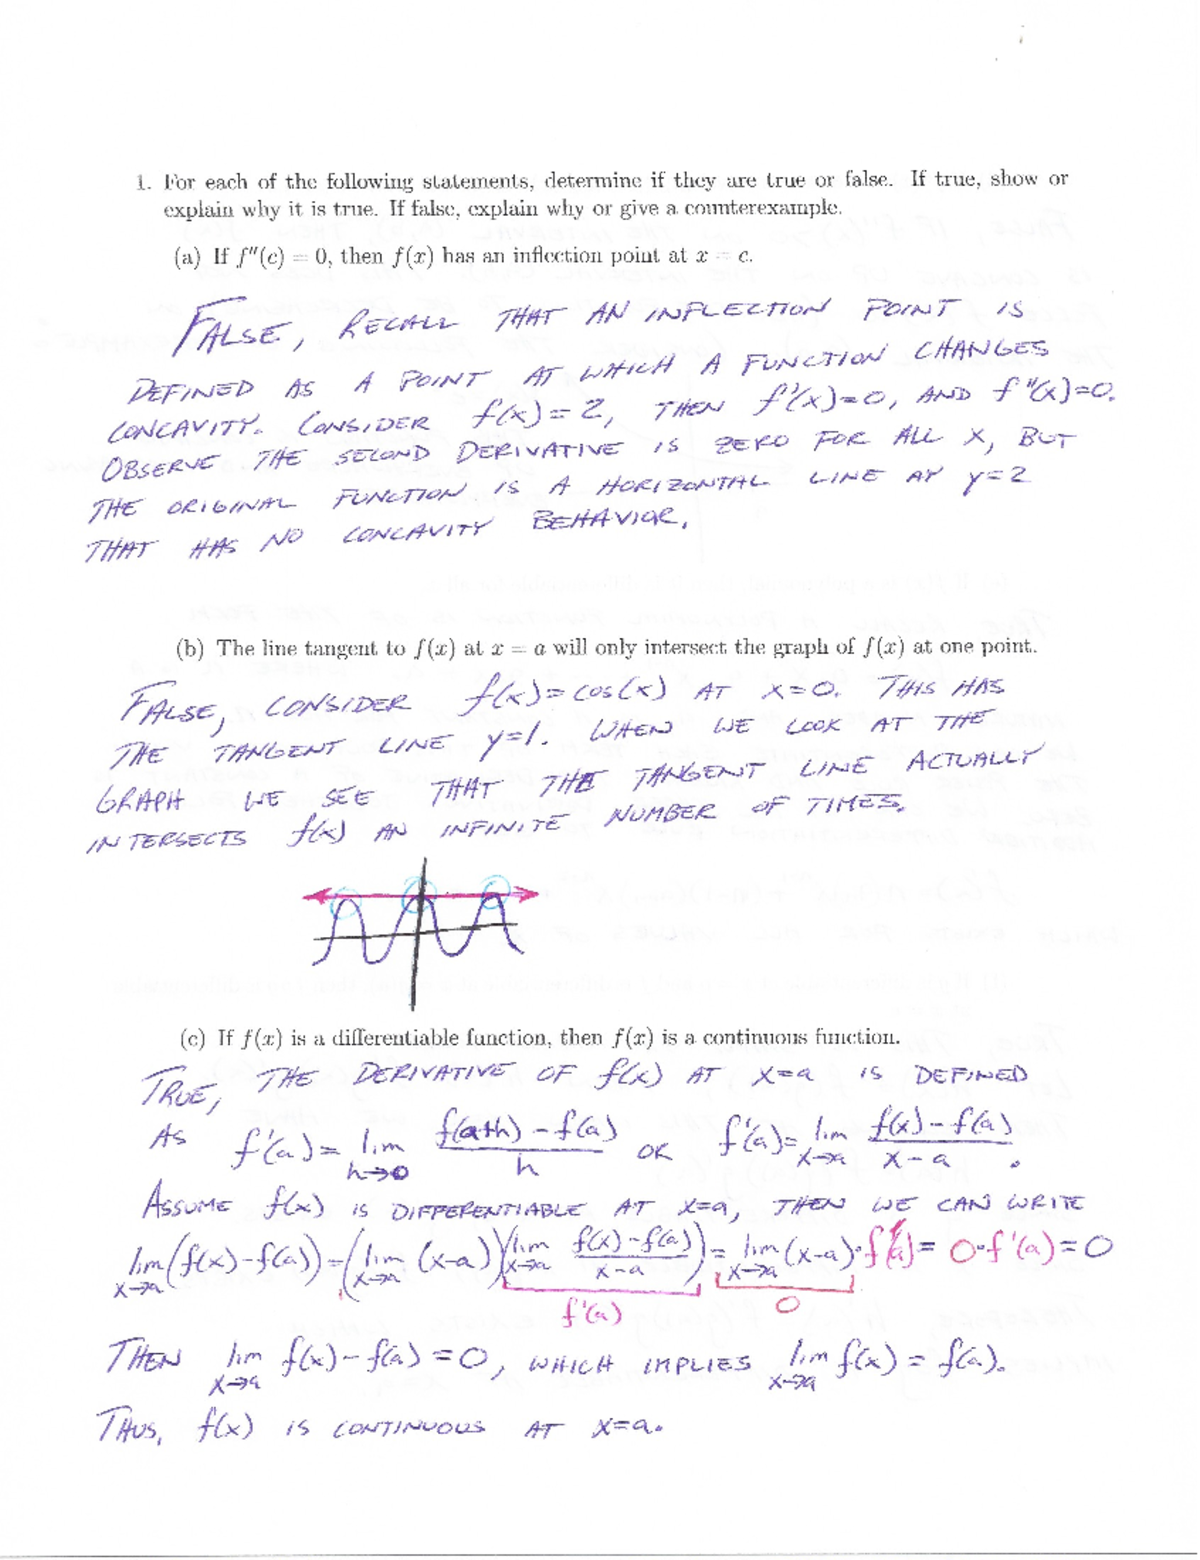 1. For each of the following statements, determine if they are true or false. If true, show or
explain why it is true. If false, explain why or give a counterexample.
(a) If f''(c) = 0, then f(x) has an inflection point at x = c.
FALSE, RECALL THAT AN INFLECTION POINT IS
DEFINED AS A POINT AT WHICH A FUNCTION CHANGES
CONCAVITY. CONSIDER f(x)=2, THEN f'(x)=0, AND f''(x)=0.
OBSERVE THE SECOND DERIVATIVE IS ZERO FOR ALL X, BUT
THE ORIGINAL FUNCTION IS A HORIZONTAL LINE AT y=2
THAT HAS NO CONCAVITY BEHAVIOR.
(b) The line tangent to f(x) at x = a will only intersect the graph of f(x) at one point.
FALSE, CONSIDER f(x)=cos(x) AT X=0. THIS HAS
THE TANGENT LINE y=1. WHEN WE LOOK AT THE
GRAPH WE SEE THAT THE TANGENT LINE ACTUALLY
INTERSECTS f(x) AN INFINITE NUMBER OF TIMES.
(c) If f(x) is a differentiable function, then f(x) is a continuous function.
TRUE, THE DERIVATIVE OF f(x) AT X=a IS DEFINED
AS f'(a)= lim h→0 f(a+h)-f(a) / h OR f'(a)= lim x→a f(x)-f(a) / x-a .
ASSUME f(x) IS DIFFERENTIABLE AT X=a, THEN WE CAN WRITE
lim x→a (f(x)-f(a)) = (lim x→a (x-a))(lim x→a f(x)-f(a) / x-a) = lim x→a (x-a)·f'(a) = 0·f'(a)=0
f'(a) 0
THEN lim x→a f(x)-f(a)=0, WHICH IMPLIES lim x→a f(x) = f(a).
THUS, f(x) IS CONTINUOUS AT X=a.